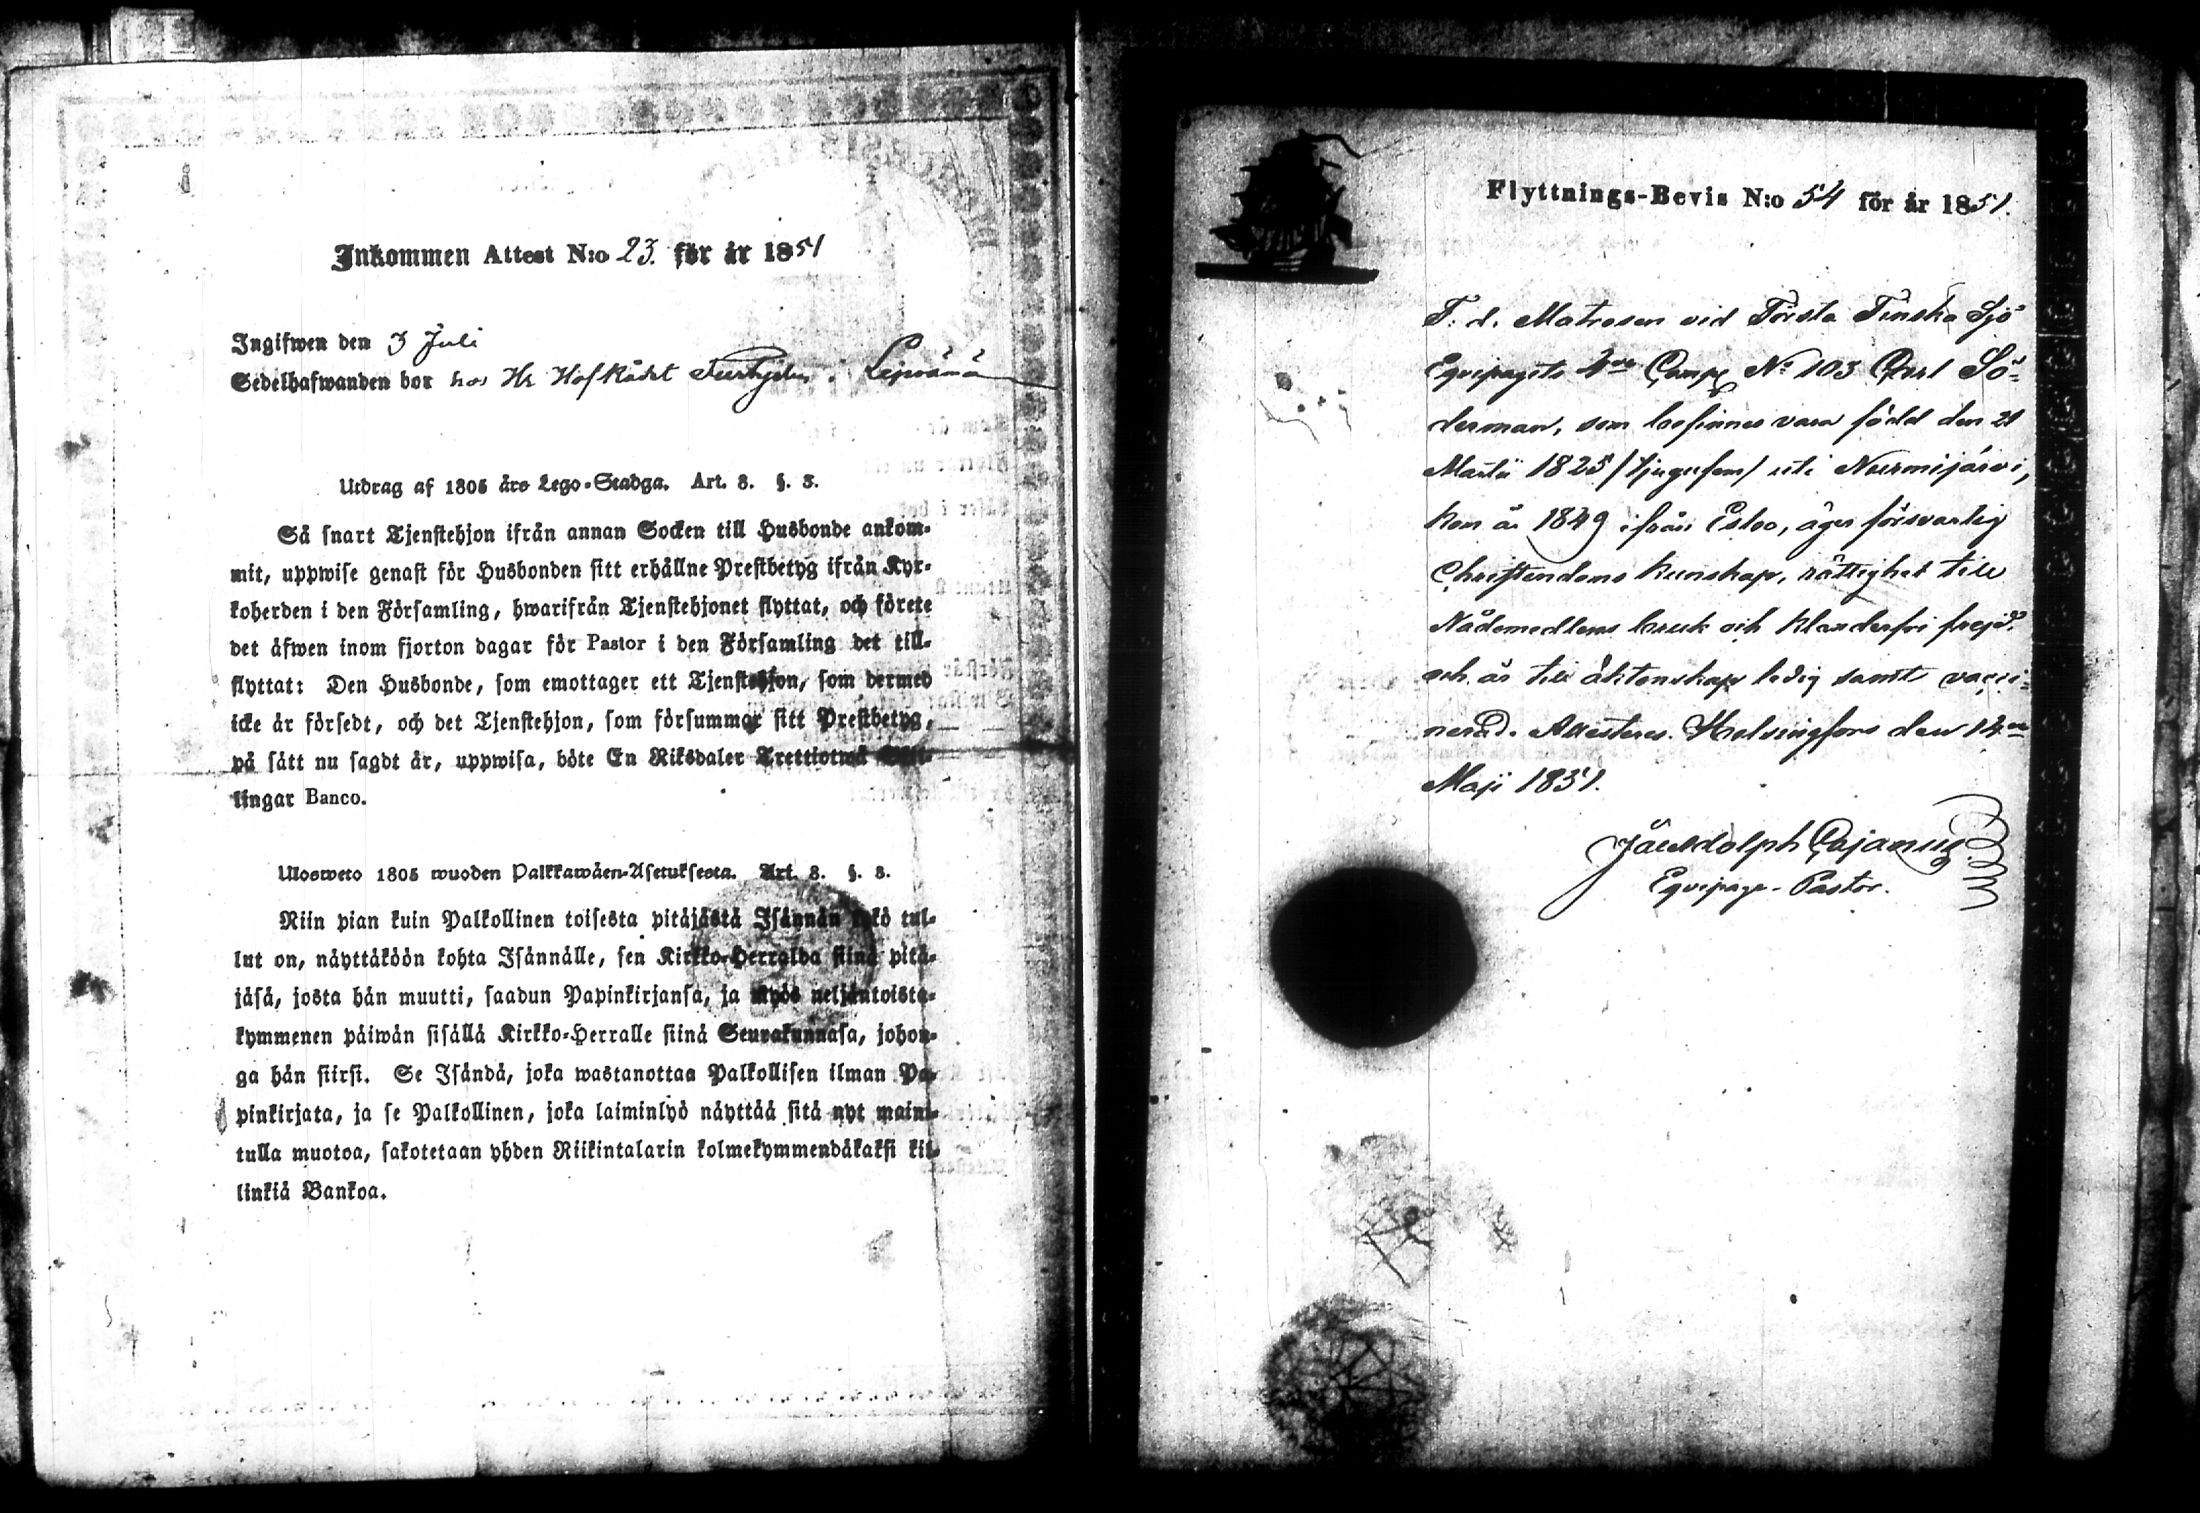 Inkommen Attest N:o 23. för år 1851
Ingifwen den 3 Juli
Sedelhafwanden bor hos Hr Hofrådet
Utdrag af 1805 års Lego-Stadga. Art. 3. §. 3.
Så snart Tjenstehjon ifrån annan Socken till Husbonde ankom-
mit, uppwise genast för Husbonden sitt erhållne Prestbetyg ifrån Kyr-
koherden i den Församling, hwarifrån Tjenstehjonet flyttat, och förete
det äfwen inom fjorton dagar för Pastor i den Församling det till-
flyttat: Den Husbonde, som emottager ett Tjenstehjon, som dermed
icke är försedt, och det Tjenstehjon, som försummar sitt Prestbetyg,
på sätt nu sagdt är, uppwisa, böte En Riksdaler Trettiotwå Skil-
lingar Banco.
Ulosweto 1805 wuoden Palkkawäen-Asetuksesta. Art. 3. §. 3.
Niin pian kuin Palkollinen toisesta pitäjästä Isännän tykö tul-
lut on, näyttäköön kohta Isännälle, sen Kirkko-Herralda siinä pitä-
jäsä, josta hän muutti, saadun Papinkirjansa, ja myös neljäntoista-
kymmenen päiwän sisällä Kirkko-Herralle siinä Seurakunnasa, johon-
ga hän siirsi. Se Isändä, joka wastanottaa Palkollisen ilman Pa-
pinkirjata, ja se Palkollinen, joka laiminlyö näyttää sitä nyt maini-
tulla muotoa, sakotetaan yhden Riikintalarin kolmekymmendäkaksi kil-
linkiä Bankoa.
Flyttnings-Bevis N:o 54 för år 1851.
F. d. Matrosen vid Första Finska Sjö
Equipagets Comp No 103 Carl Sö-
derman, som befinnes vara född den 21
Martii 1825 /tjugufem/ uti Nurmijärvi,
kom år 1849 ifrån Esbo, äger försvarlig
Christendoms kunskap, rättighet till
Nådemedlens bruk och klanderfri frejd.
och är till äktenskap ledig samt vacci-
nerad. Attesteres. Helsingfors den 14de
Maji 1851.
Cajanus
Equipage-Pastor.